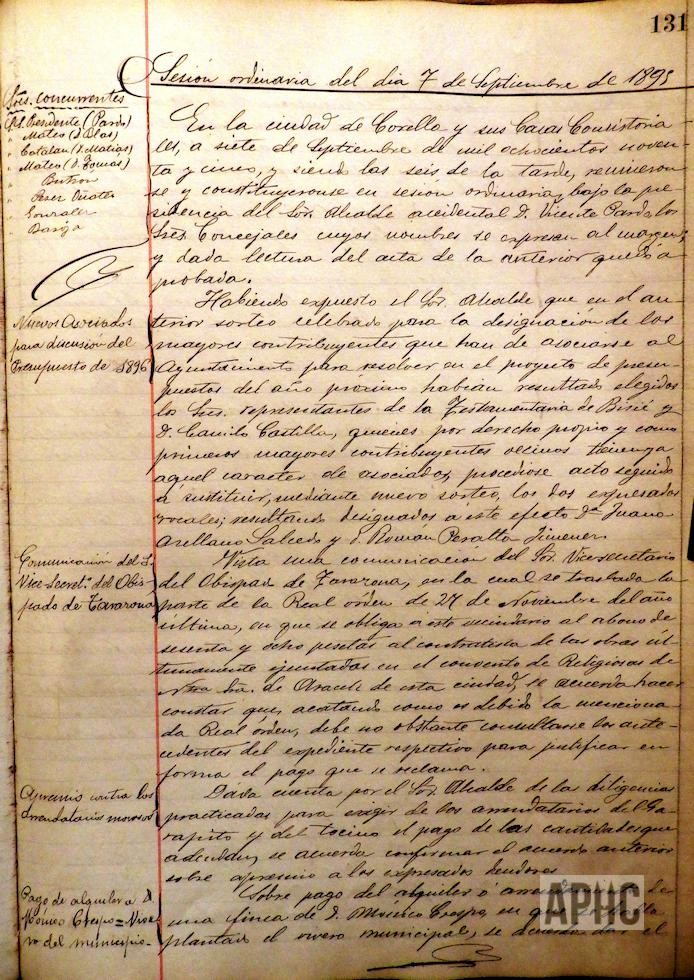 131
Sesión ordinaria del dia 7 de Septiembre de 1895
Sres. concurrentes
Presidente (Pardo)
Mateo (D. Blas)
Catalan (D. Matias)
Mateo (D. Tomás)
Butron
Perez Oñate
Gonzalez
En la ciudad de Corella y sus Casas Consistoria-
les, a siete de Septiembre de mil ochocientos noven-
ta y cinco, y siendo las seis de la tarde, reunieron-
se y constituyeronse en sesion ordinaria, bajo la pre-
sidencia del Sor. Alcalde accidental D. Vicente Pardo, los
Sres. Concejales cuyos nombres se expresan al margen;
y dada lectura del acta de la anterior quedó a-
probada.
Nuevos Asociados
para discusion del
Presupuesto de 1896
Habiendo expuesto el Sor. Alcalde que en el an-
terior sorteo celebrado para la designación de los
mayores contribuyentes que han de asociarse al
Ayuntamiento para resolver en el proyecto de presu-
puestos del año proximo habian resultado elegidos
los Sres. representantes de la Testamentaria de Bisié y
D. Camilo Castilla, quienes por derecho propio y como
primeros mayores contribuyentes vecinos tienen ya
aquel caracter de asociados, procediose acto seguido
a sustituir, mediante nuevo sorteo, los dos expresados
vocales; resultando designados a este efecto Dn. Juano
Arellano Salcedo y D. Roman Peralta Jimenez.
Comunicación del S.
Vice-Secret.º del Obis-
pado de Tarazona
Vista una comunicación del Sor. Vicesecretario
del Obispado de Tarazona, en la cual se traslada la
parte de la Real órden de 27 de Noviembre del año
último, en que se obliga a este vecindario al abono de
sesenta y ocho pesetas al contratista de las obras úl-
timamente ejecutadas en el convento de Religiosas de
Ntra. Sra. de Araceli de esta ciudad, se acuerda hacer
constar que, acatando como es debido la menciona-
da Real órden, debe no obstante consultarse los ante-
cedentes del expediente respetivo para justificar en
forma el pago que se reclama.
Apremio contra los
arrendatarios morosos
Dada cuenta por el Sor. Alcalde de las diligencias
practicadas para exigir de los arrendatarios del Ga-
rapito y del Tocino el pago de las cantidades que
adeudan, se acuerda confirmar el acuerdo anterior
sobre apremio a los expresados deudores.
Pago de alquiler a D.
Mónico Crespo = Vive-
ro del municipio.-
Sobre pago del alquiler ó de
una finca de D. Mónico Crespo, en
plantado el vivero municipal, se acuerda dar el
APHC